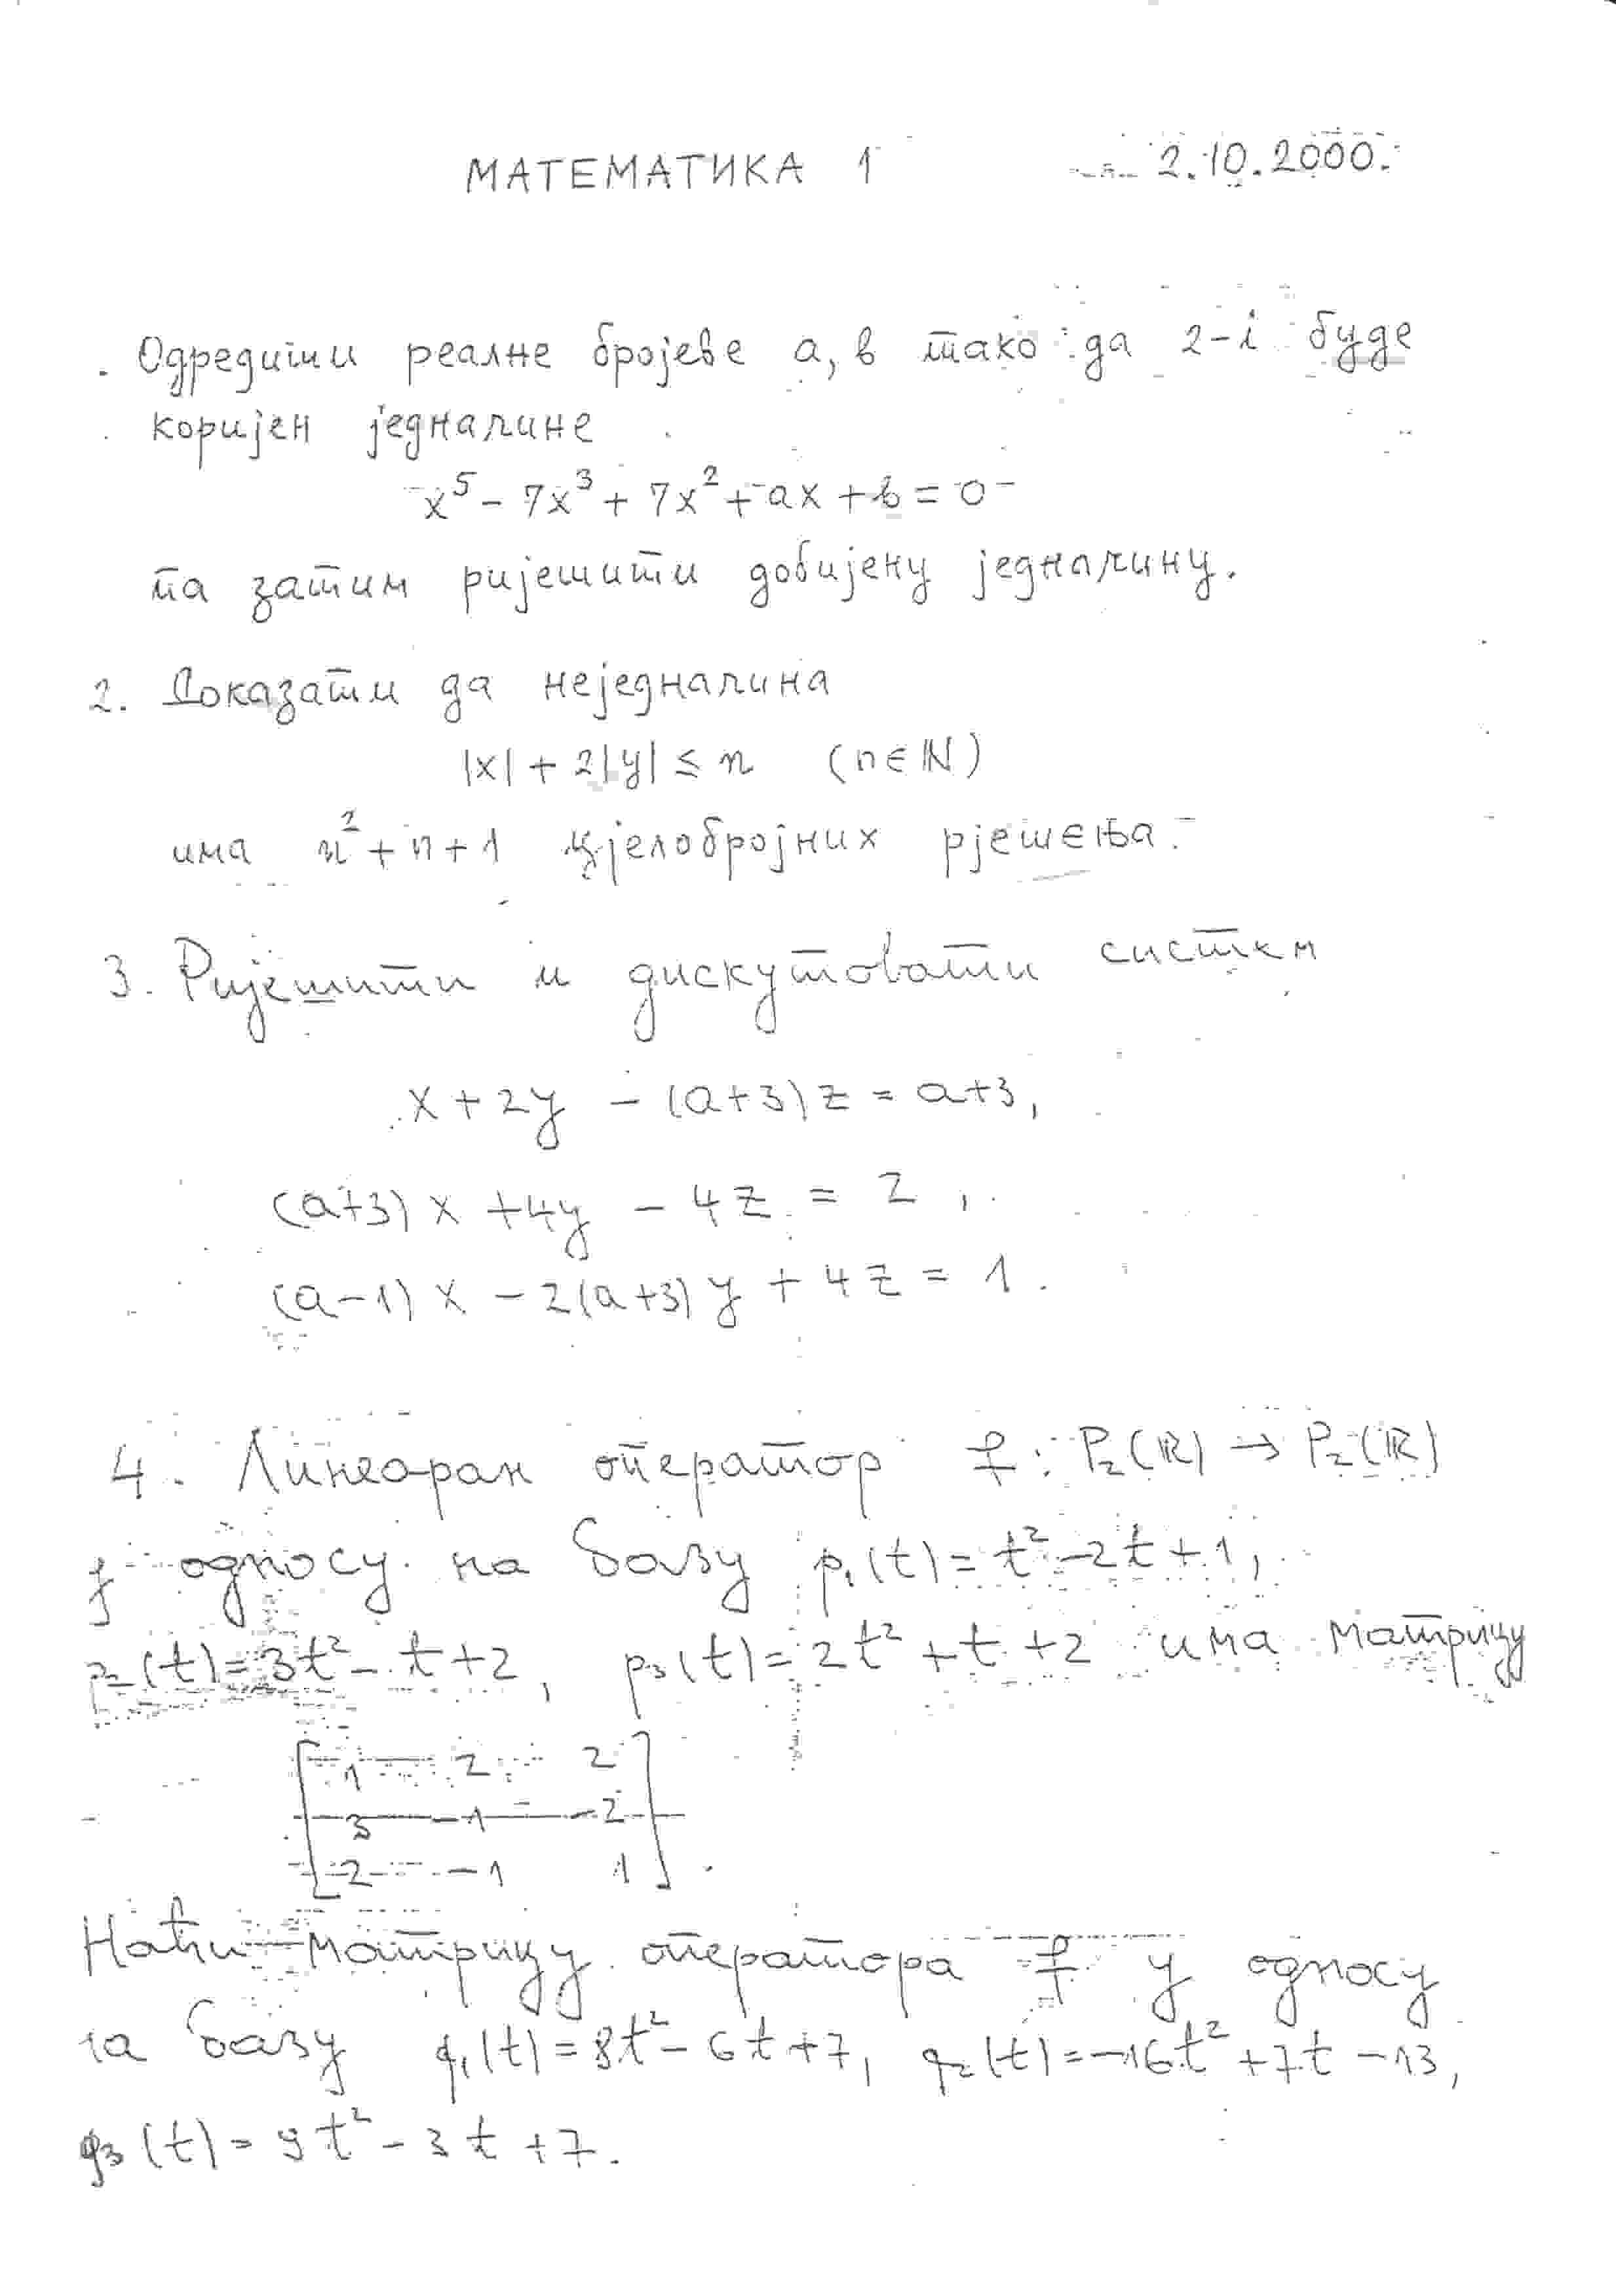 МАТЕМАТИКА 1 2.10.2000.
. Одредити реалне бројеве а, в тако да 2-i буде
коријен једначине
x⁵ - 7x³ + 7x² + ax + b = 0
па затим ријешити добијену једначину.
2. Доказати да неједначина
|x| + 2|y| ≤ n (n∈ℕ)
има n² + n + 1 цјелобројних рјешења.
3. Ријешити и дискутовати систем
x + 2y - (a+3)z = a+3,
(a+3)x + 4y - 4z = 2,
(a-1)x - 2(a+3)y + 4z = 1.
4. Линеаран оператор f: P₂(ℝ) → P₂(ℝ)
у односу на базу p₁(t) = t² - 2t + 1,
p₂(t) = 3t² - t + 2, p₃(t) = 2t² + t + 2 има матрицу
1 2 2
3 -1 -2
2 -1 1 .
Наћи матрицу оператора f у односу
на базу q₁(t) = 8t² - 6t + 7, q₂(t) = -16t² + 7t - 13,
q₃(t) = 9t² - 3t + 7.